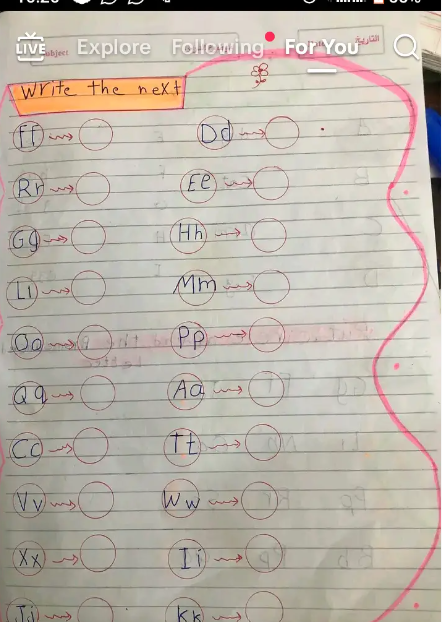 LIVE Explore Following For You
write the next
Ff Dd
Rr Ee
Gg Hh
Ll Mm
Oo Pp
Qq Aa
Cc Tt
Vv Ww
Xx Ii
Jj Kk